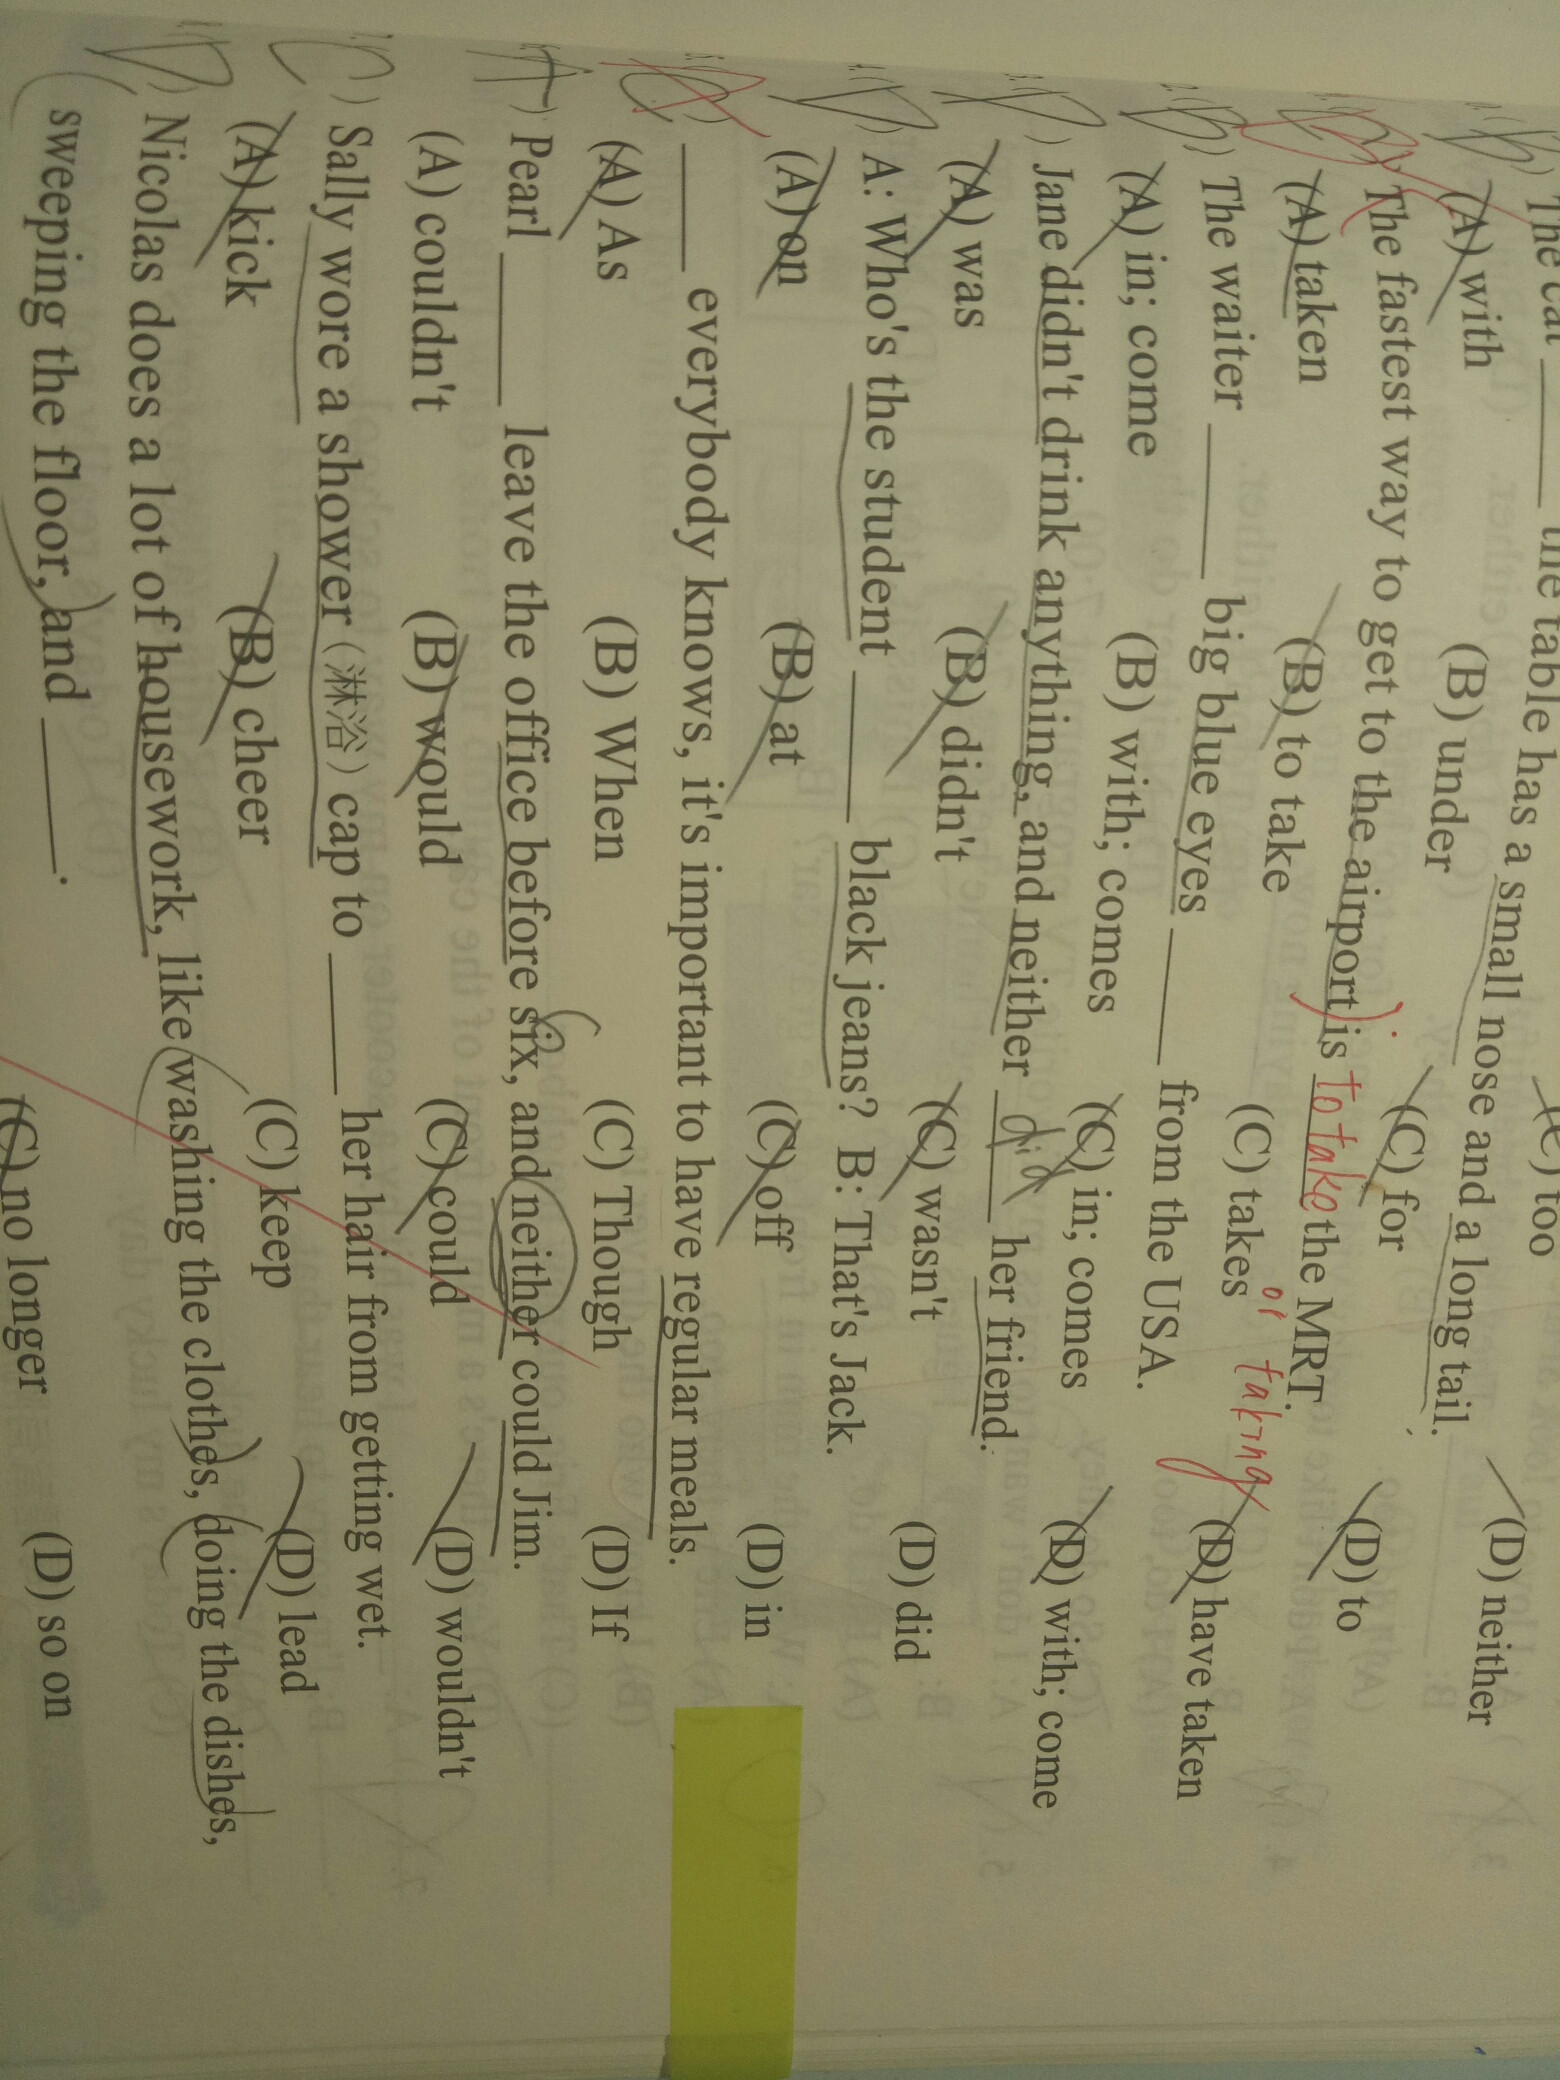 (C) too (D) neither
the table has a small nose and a long tail.
(A) with (B) under (C) for (D) to
The fastest way to get to the airport is to take the MRT.
or taking
(A) taken (B) to take (C) takes (D) have taken
(B) The waiter ____ big blue eyes ____ from the USA.
(A) in; come (B) with; comes (C) in; comes (D) with; come
(D) Jane didn't drink anything, and neither did her friend.
(A) was (B) didn't (C) wasn't (D) did
(D) A: Who's the student ____ black jeans? B: That's Jack.
(A) on (B) at (C) off (D) in
____ everybody knows, it's important to have regular meals.
(A) As (B) When (C) Though (D) If
(A) Pearl ____ leave the office before six, and neither could Jim.
(A) couldn't (B) would (C) could (D) wouldn't
(C) Sally wore a shower (淋浴) cap to ____ her hair from getting wet.
(A) kick (B) cheer (C) keep (D) lead
(D) Nicolas does a lot of housework, like washing the clothes, doing the dishes,
sweeping the floor, and ____.
(C) no longer (D) so on